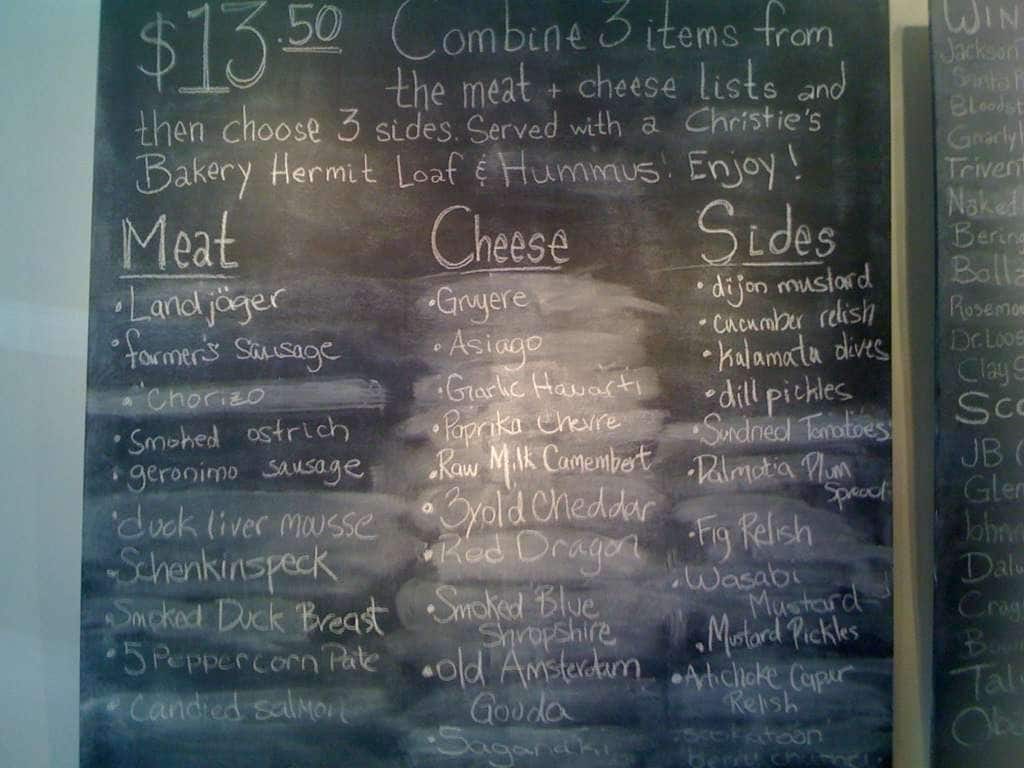 $13.50 Combine 3 items from
the meat + cheese lists and
then choose 3 sides. Served with a Christie's
Bakery Hermit Loaf & Hummus! Enjoy!
Meat
• Landjäger
• farmer's sausage
• Chorizo
• Smoked ostrich
• geronimo sausage
• duck liver mousse
• Schenkinspeck
• Smoked Duck Breast
• 5 Peppercorn Pate
• Candied salmon
Cheese
• Gruyere
• Asiago
• Garlic Havarti
• Paprika Chevre
• Raw Milk Camembert
• 3yold Cheddar
• Red Dragon
• Smoked Blue
Shropshire
• Old Amsterdam
Gouda
• Saganaki
Sides
• dijon mustard
• cucumber relish
• kalamata olives
• dill pickles
• Sundried Tomatoes
• Dalmatia Plum
Spread
• Fig Relish
• Wasabi
Mustard
• Mustard Pickles
• Artichoke Caper
Relish
saskatoon
berry
Jackson
Gnarly
Naked
JB